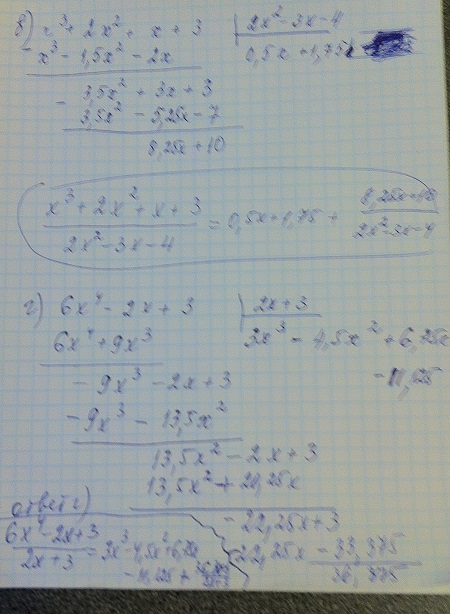 в) x³ + 2x² + x + 3 | 2x² - 3x - 4
- x³ - 1,5x² - 2x 0,5x + 1,75
- 3,5x² + 3x + 3
3,5x² - 5,25x - 7
8,25x + 10
x³ + 2x² + x + 3 / 2x² - 3x - 4 = 0,5x + 1,75 + 8,25x + 10 / 2x² - 3x - 4
г) 6x⁴ - 2x + 3 | 2x + 3
6x⁴ + 9x³ 3x³ - 4,5x² + 6,75x
- 11,125
- 9x³ - 2x + 3
- 9x³ - 13,5x²
13,5x² - 2x + 3
13,5x² + 20,25x
- 22,25x + 3
- 22,25x - 33,375
36,375
ответ г)
6x⁴ - 2x + 3 / 2x + 3 = 3x³ - 4,5x² + 6,75x
- 11,125 +